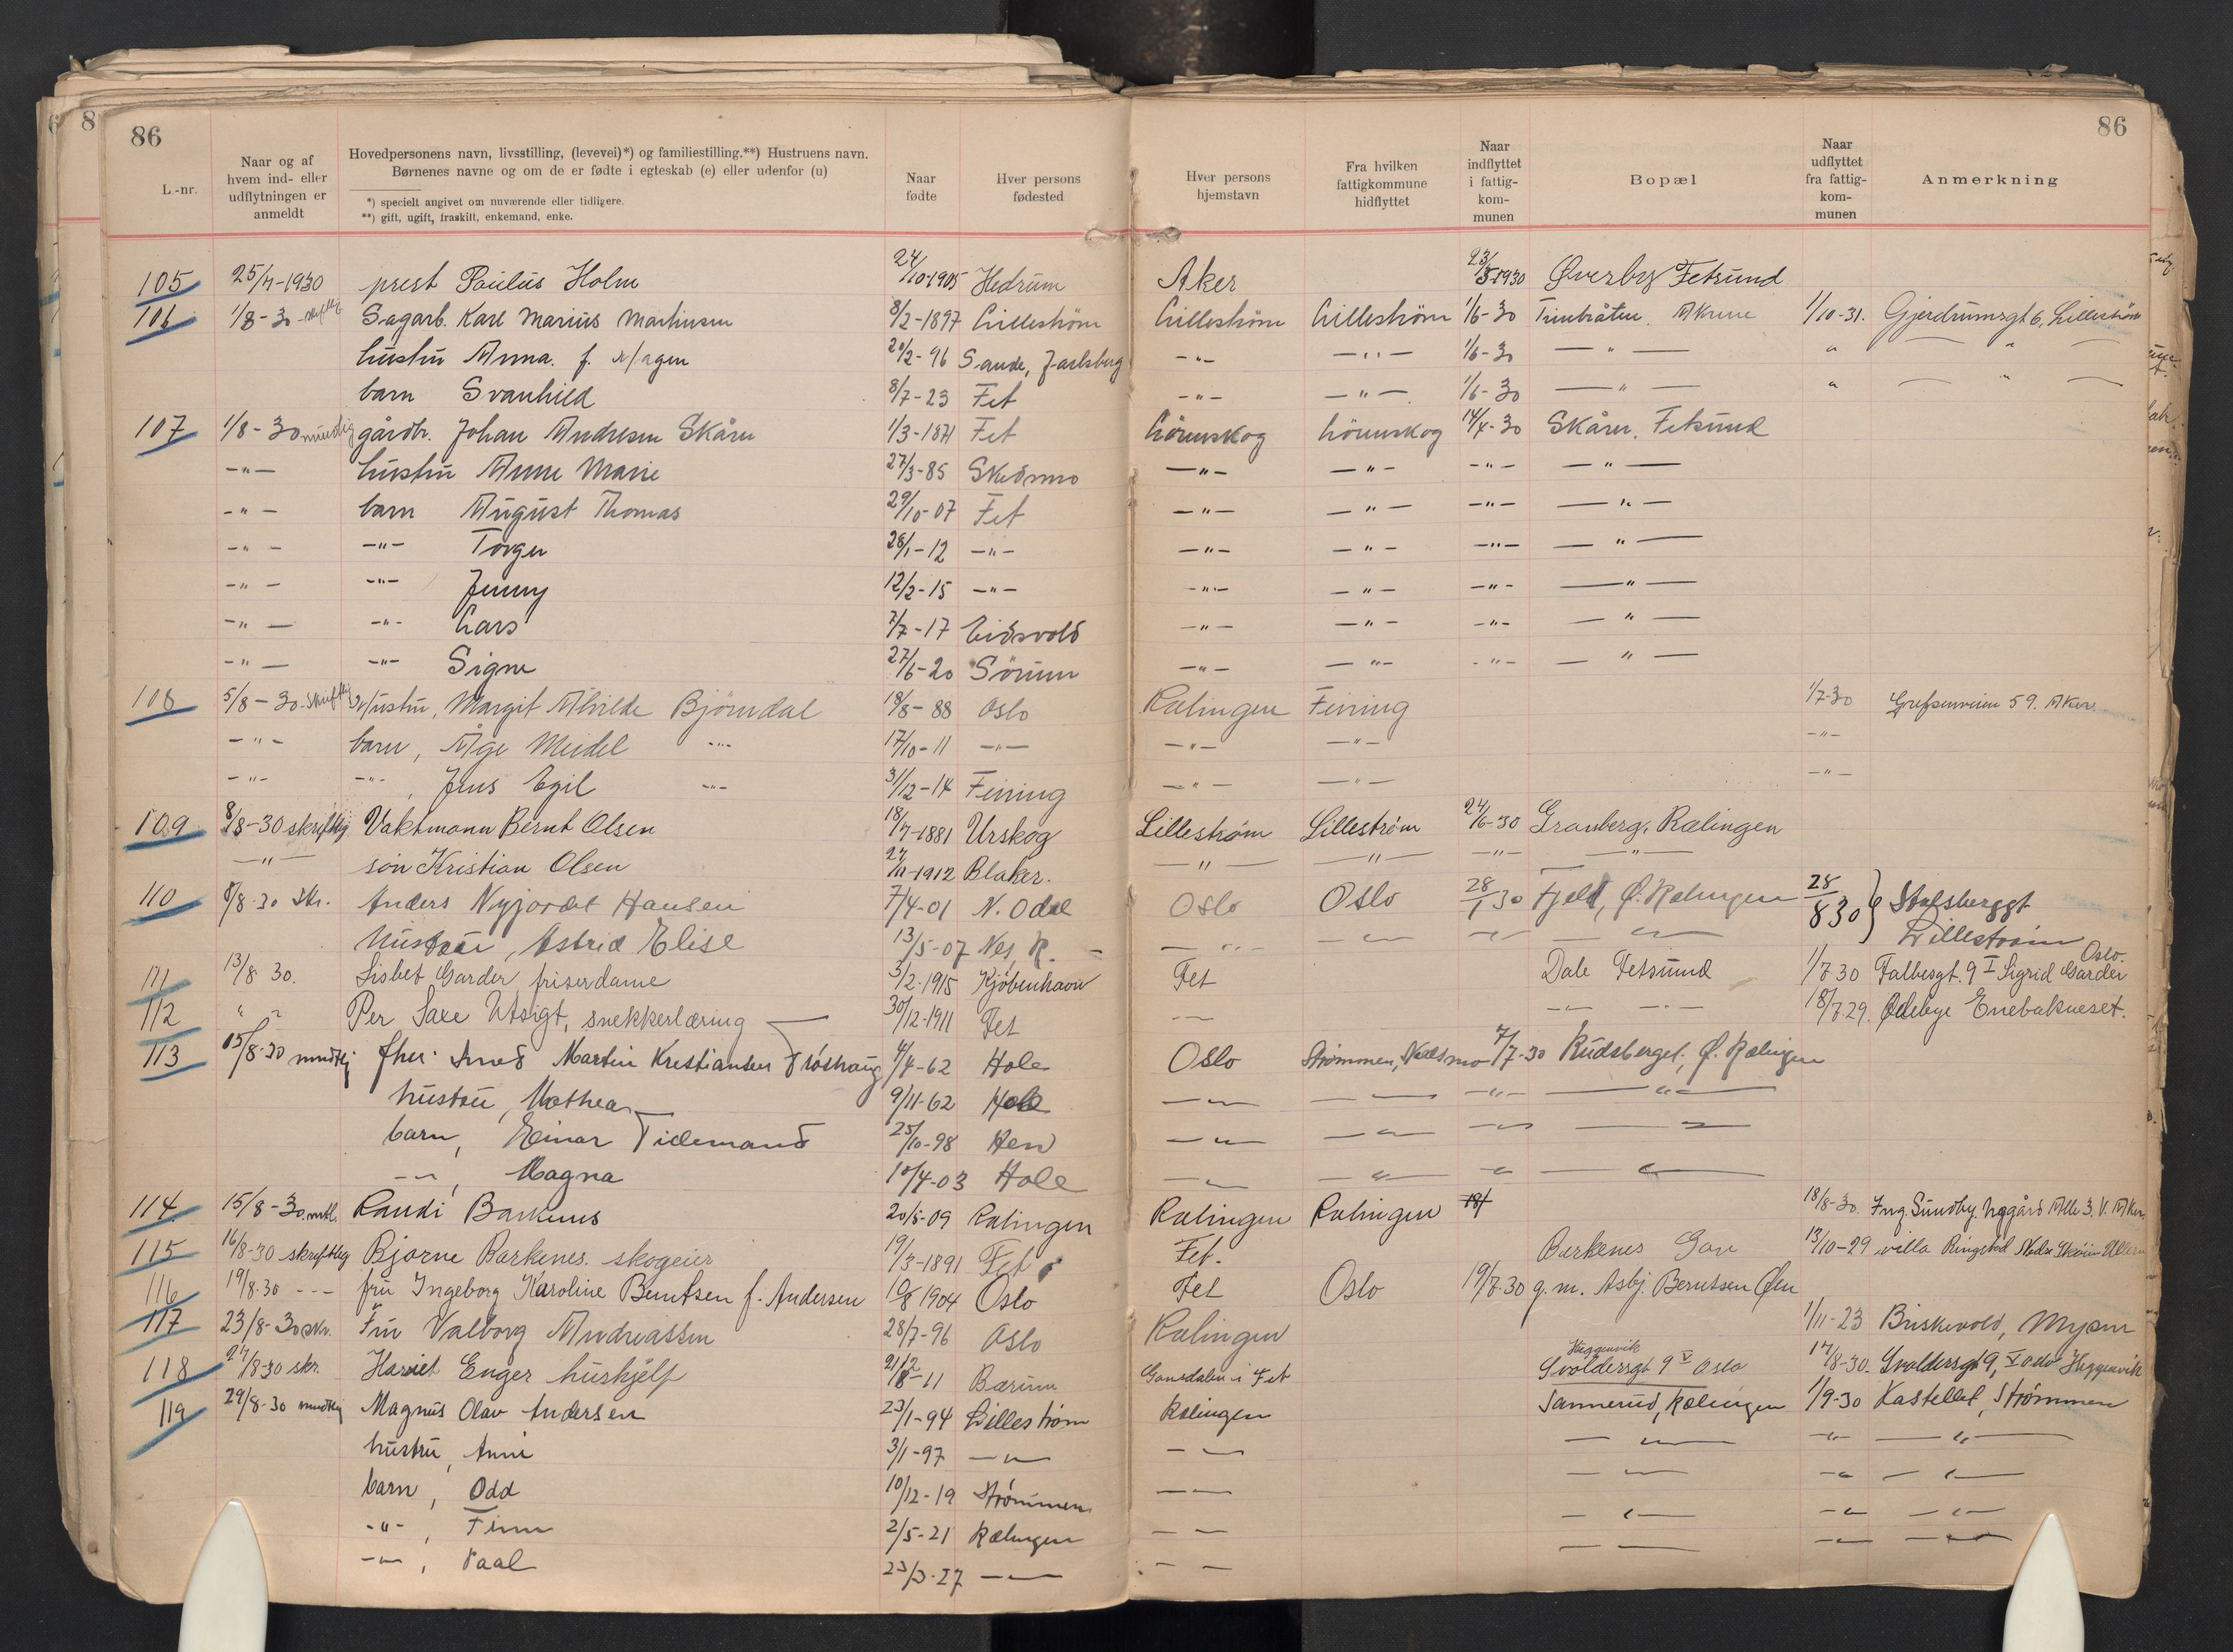 86
86
L.-nr.
Naar og af hvem ind- eller udflytningen er anmeldt
Hovedpersonens navn, livsstilling, (levevei)*) og familiestilling.**) Hustruens navn.
Børnenes navne og om de er fødte i egteskab (e) eller udenfor (u)
*) specielt angivet om nuværende eller tidligere.
**) gift, ugift, fraskilt, enkemand, enke.
Naar fødte
Hver persons fødested
Hver persons hjemstavn
Fra hvilken fattigkommune hidflyttet
Naar indflyttet i fattig-kom-munen
Bopæl
Naar udflyttet fra fattig-kom-munen
Anmerkning
105 25/7-1930 prest Paulus Holm 24/10-1905 Hedrum Aker 23/5-1930 Øverby Fetsund
106 1/8-30 Sagarb. Karl Marius Martinsen 8/2-1897 Lilleström Lilleström Lilleström 1/6-30 1/10-31. Gjerdrumsgt 6, Lilleström
hustru Anna f. Hagen 20/2-96 Sande, Jarlsberg -"- -"- 1/6-30 -"- " "
barn Svanhild 8/7-23 Fet -"- -"- 1/6-30 -"- " "
107 1/8-30 mundtlig gårdbr. Johan Andresen Skårer 1/3-1871 Fet Lörenskog Lörenskog 14/4-30 Skårer, Fetsund
-"- hustru Anne Marie 27/3-85 Skedsmo -"- -"- -"- -"-
-"- barn August Thomas 29/10-07 Fet -"- -"- -"- -"-
-"- -"- Torger 28/1-12 -"- -"- -"- -"- -"-
-"- -"- Jenny 12/2-15 -"- -"- -"- -"- -"-
-"- -"- Lars 7/7-17 Eidsvold -"- -"- -"- -"-
-"- -"- Signe 27/6-20 Sörum -"- -"- -"- -"-
108 5/8-30 skriftlig Hustru, Margit Alvilde Björndal 18/8-88 Oslo Rælingen Feiring 1/7-30 Grefsenveien 59. Aker
-"- barn, Åge Meidel -"- 17/10-11 -"- -"- -"- -"-
-"- -"-, Jens Egil -"- 31/12-14 Feiring -"- -"- -"-
109 8/8-30 skriftlig Vaktmann Bernt Olsen 18/7-1881 Urskog Lillestrøm Lillestrøm 24/6-30 Granberg, Rælingen
-"- søn Kristian Olsen 1912 Blaker. -"- -"- -"- -"-
110 8/8-30 skr. Anders Nyjordet Hansen 7/4-01 N. Odal Oslo Oslo 28/1 30 Fjeld, Ø. Rælingen 28/8 30 } Stalsberggt
hustru, Astrid Elise 13/5-07 Nes, R. -"- -"- -"- -"- Lillestrøm
111 13/8 30. Lisbet Garder friserdame 3/2-1915 Kjøbenhavn Fet Dale Fetsund 1/7 30 Falbesgt. 9 I Sigrid Garder Oslo.
112 " " Per Saxe Utsigt, snekkerlæring 30/12-1911 Fet -"- -"- 18/7 29. Ødebye Enebakneset.
113 15/8-30 mundtlig Martin Kristiansen Trøshaug 4/4-62 Hole Oslo Strømmen, 7/7-30 Rudsberget, Ø. Rælingen
hustru, Mathea 9/11-62 Hole -"- -"- -"- -"-
barn, Einar Tidemand 25/10-98 Hen -"- -"- -"- -"-
-"-, Magna 10/4-03 Hole -"- -"- -"- -"-
114 15/8-30 mtl. Randi Barkenes 20/5-09 Rælingen Rælingen Rælingen 18/ 18/8-30. Ing. Sundby. Allé 3. V. Aker
115 16/8-30 skriftlig Bjarne Barkenes. skogeier 19/3-1891 Fet Fet. Barkenes Gav 13/10-29 villa Ringstad
116 19/8-30 --- fru Ingeborg Karoline Berntsen f. Andersen 10/8 1904 Oslo Fet Oslo 19/7-30 g. m. Asbj. Berntsen Øen
117 23/8-30 skr. Fru Valborg Andreassen 28/7-96 Oslo Rælingen 1/11-23 Briskevold, Mysen
118 27/8-30 skr. Harriet Enger hushjelp 21/2-11 Bærum Gansdalen i Fet Heggenvik Svoldersgt 9 V Oslo 17/8-30. Svoldersgt 9, V Oslo Heggenvik
119 29/8-30 mundtlig Magnus Olav Andersen 23/1-94 Lillestrøm Rælingen Sannerud, Rælingen 1/9-30 Kastellet, Strømmen
hustru, Anni 3/1-97 -"- -"- -"- -"- -"-
barn, Odd 10/12-19 Strømmen -"- -"- -"- -"-
-"-, Finn 2/5-21 Rælingen -"- -"- -"- -"-
-"-, Paal 23/3-27 -"- -"- -"- -"- -"-